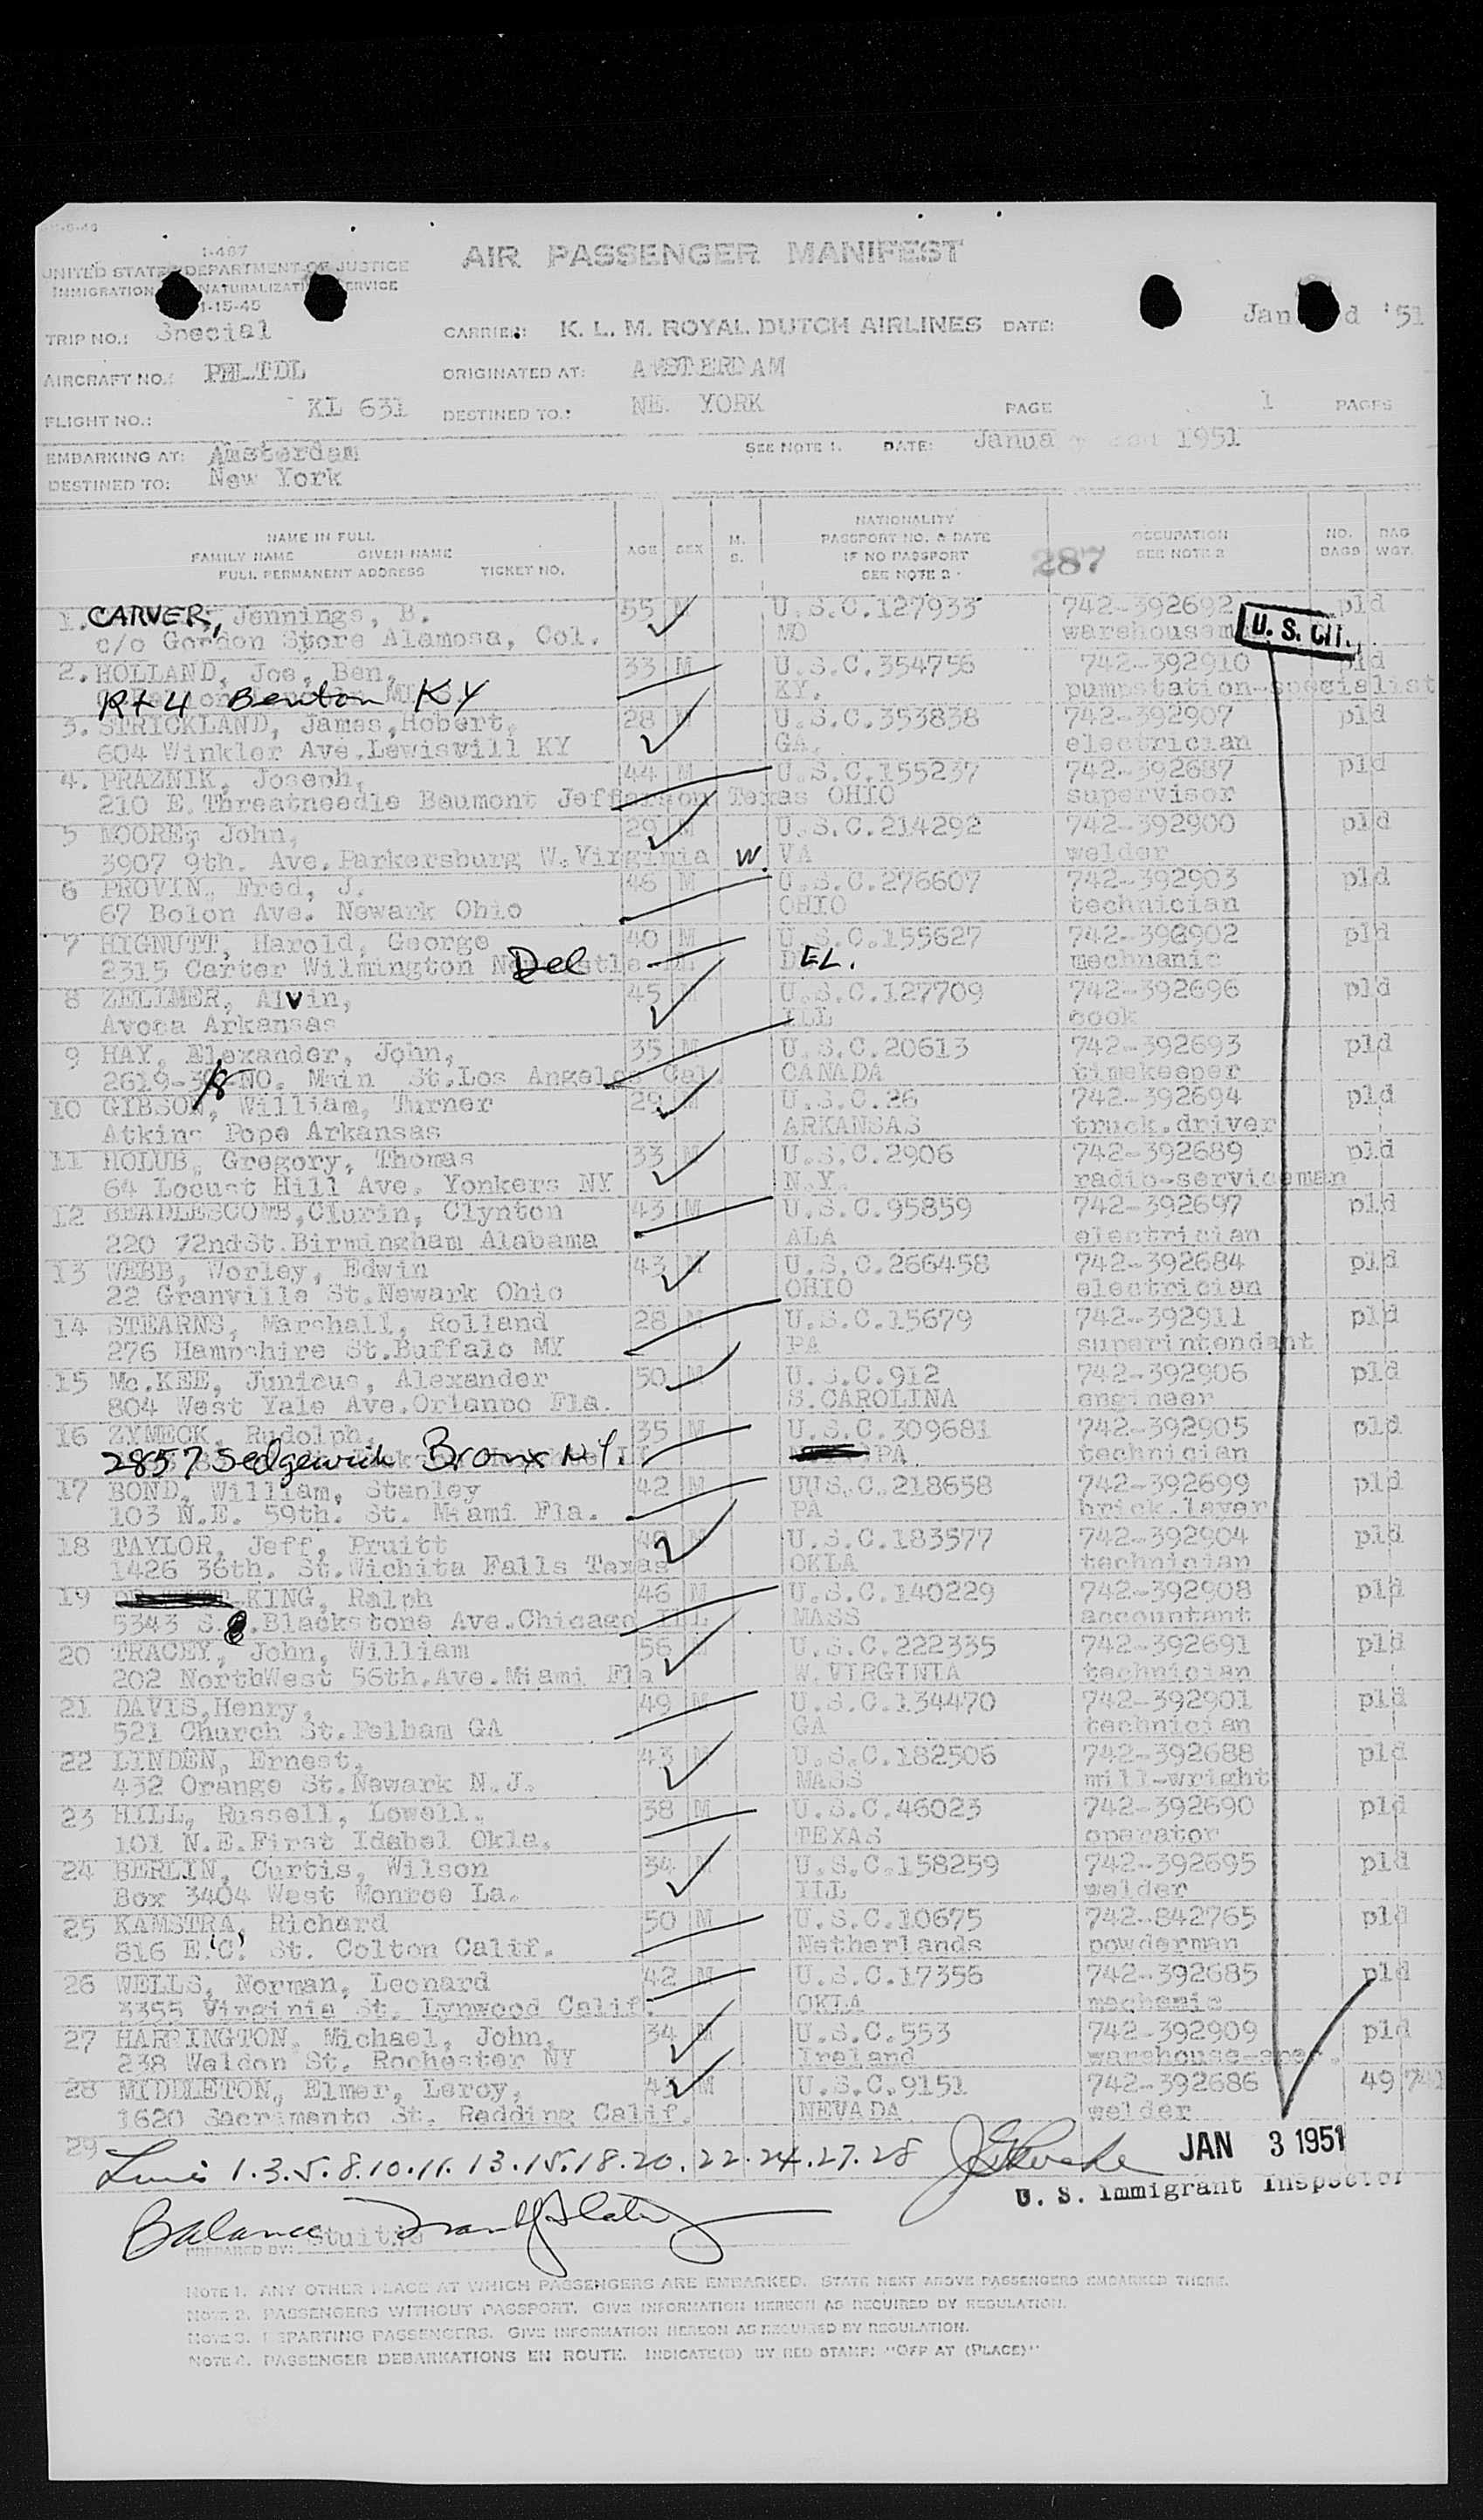 I-487
UNITED STATES DEPARTMENT OF JUSTICE
IMMIGRATION NATURALIZATION SERVICE
1-15-45
AIR PASSENGER MANIFEST
TRIP NO.: Special CARRIER: K. L. M. ROYAL DUTCH AIRLINES DATE: Jan d '51
AIRCRAFT NO.: PHLTDL ORIGINATED AT: AMSTERDAM
FLIGHT NO.: KL 631 DESTINED TO: NE. YORK PAGE 1 PAGES
EMBARKING AT: Amsterdam SEE NOTE 1. DATE: Janua 1951
DESTINED TO: New York
NAME IN FULL
FAMILY NAME GIVEN NAME
FULL PERMANENT ADDRESS TICKET NO.
AGE SEX M. S.
NATIONALITY
PASSPORT NO. & DATE
IF NO PASSPORT
SEE NOTE 2
287
OCCUPATION
SEE NOTE 3
NO. BAGS BAG WGT.
1. CARVER, Jennings, B. 55 M U.S.C.127933 742-392692 pld
c/o Gordon Store Alamosa, Col. MO warehousem
U. S. CIT.
2. HOLLAND, Joe, Ben, 33 M U.S.C.354756 742-392910 pld
Rt 4 Benton KY KY. pumpstation-specialist
3. STRICKLAND, James, Hobert, 28 M U.S.C.353838 742-392907 pld
604 Winkler Ave.Lewisvill KY GA. electrician
4. PRAZNIK, Joseph, 44 M U.S.C.155237 742-392687 pld
210 E.Threatneedle Beaumont Jefferson Texas OHIO supervisor
5 MOORE, John, 29 M U.S.C.214292 742-392900 pld
3907 9th. Ave.Parkersburg W.Virginia W. VA welder
6 PROVIN, Fred, J. 46 M U.S.C.276607 742-392903 pld
67 Bolon Ave. Newark Ohio OHIO technician
7 HIGNUTT, Harold, George 40 M U.S.C.155627 742-392902 pld
2315 Carter Wilmington Del DEL. mechnanic
8 ZELIMER, Alvin, 45 M U.S.C.127709 742-392696 pld
Avoca Arkansas ILL cook
9 HAY, Elexander, John, 35 M U.S.C.20613 742-392693 pld
2619-38-NO. Main St.Los Angeles Cal. CANADA timekeeper
10 GIBSON, William, Turner 29 M U.S.C.26 742-392694 pld
Atkins Pope Arkansas ARKANSAS truck.driver
11 HOLUB, Gregory, Thomas 33 M U.S.C.2906 742-392689 pld
64 Locust Hill Ave. Yonkers NY N.Y. radio-serviceman
12 BEADLESCOMB,Clurin, Clynton 43 M U.S.C.95859 742-392697 pld
220 72ndSt.Birmingham Alabama ALA electrician
13 WEBB, Worley, Edwin 43 M U.S.C.266458 742-392684 pld
22 Granville St.Newark Ohio OHIO electrician
14 STEARNS, Marshall, Rolland 28 M U.S.C.15679 742-392911 pld
276 Hampshire St.Buffalo MY PA superintendant
15 Mc.KEE, Junious, Alexander 50 M U.S.C.912 742-392906 pld
804 West Yale Ave.Orlando Fla. S.CAROLINA engineer
16 ZYMECK, Rudolph, 35 M U.S.C.309681 742-392905 pld
2857 Sedgewick Bronx N.Y. PA technician
17 BOND, William, Stanley 42 M UUS.C.218658 742-392699 pld
103 N.E. 59th. St. Miami Fla. PA brick.layer
18 TAYLOR, Jeff, Pruitt M U.S.C.183577 742-392904 pld
1426 36th. St.Wichita Falls Texas OKLA technician
19 KING, Ralph 46 M U.S.C.140229 742-392908 pld
5343 S. .Blackstone Ave.Chicago ILL MASS accountant
20 TRACEY, John, William 56 M U.S.C.222335 742-392691 pld
202 NorthWest 56th.Ave.Miami Fla W.VIRGINIA technician
21 DAVIS,Henry, 49 M U.S.C.134470 742-392901 pld
521 Church St.Pelham GA GA technician
22 LINDEN, Ernest, 43 M U.S.C.182506 742-392688 pld
432 Orange St.Newark N.J. MASS mill-wright
23 HILL, Russell, Lowell. 38 M U.S.C.46023 742-392690 pld
101 N.E.First Idabel Okla. TEXAS operator
24 BERLIN, Curtis, Wilson 34 M U.S.C.158259 742-392695 pld
Box 3404 West Monroe La. ILL welder
25 KAMSTRA, Richard 50 M U.S.C.10675 742-842765 pld
816 E.'C' St. Colton Calif. Netherlands powderman
26 WELLS, Norman, Leonard 42 M U.S.C.17356 742-392685 pld
3355 Virginia St. Lynwood Calif. OKLA mechanic
27 HARRINGTON, Michael, John, 34 M U.S.C.553 742-392909 pld
238 Weldon St. Rochester NY Ireland warehouse-
28 MIDDLETON, Elmer, Leroy, 43 M U.S.C.9151 742-392686 49 741
1620 Sacrimento St. Redding Calif. NEVADA welder
29
1.3.5.8.10.11.13.15.18.20.22.24.27.28 JAN 3 1951
U. S. Immigrant Inspector
Balance
PREPARED BY:
NOTE 1. ANY OTHER PLACE AT WHICH PASSENGERS ARE EMBARKED. STATE NEXT ABOVE PASSENGERS EMBARKED THERE.
NOTE 2. PASSENGERS WITHOUT PASSPORT. GIVE INFORMATION HEREON AS REQUIRED BY REGULATION.
NOTE 3. DEPARTING PASSENGERS. GIVE INFORMATION HEREON AS REQUIRED BY REGULATION.
NOTE 4. PASSENGER DEBARKATIONS EN ROUTE. INDICATE(D) BY RED STAMP: "OFF AT (PLACE)"